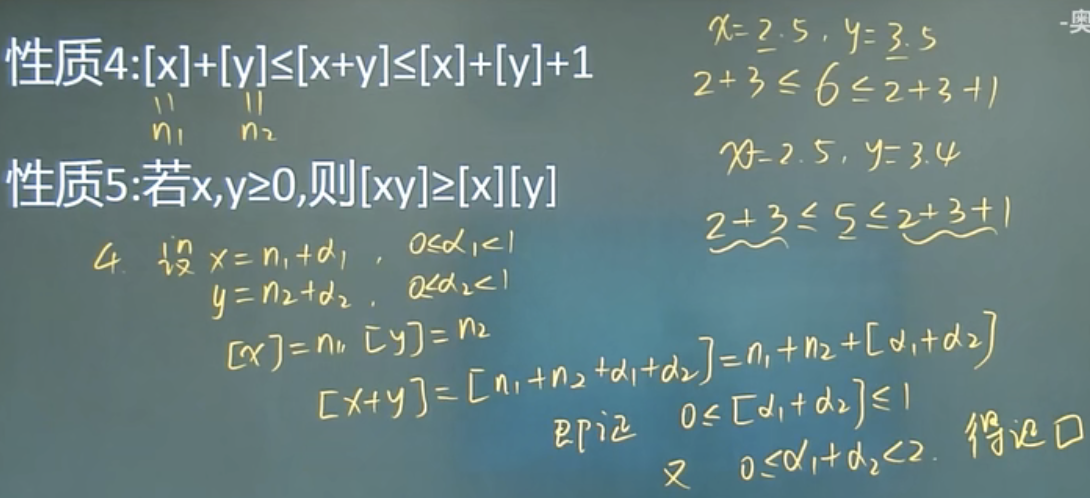 -奥
性质4:[x]+[y]≤[x+y]≤[x]+[y]+1
n₁ n₂
性质5:若x,y≥0,则[xy]≥[x][y]
x=2.5, y=3.5
2+3≤6≤2+3+1
x=2.5, y=3.4
2+3≤5≤2+3+1
4. 设 x=n₁+α₁, 0≤α₁<1
y=n₂+α₂, 0≤α₂<1
[x]=n₁, [y]=n₂
[x+y]=[n₁+n₂+α₁+α₂]=n₁+n₂+[α₁+α₂]
即证 0≤[α₁+α₂]≤1
又 0≤α₁+α₂<2. 得证□